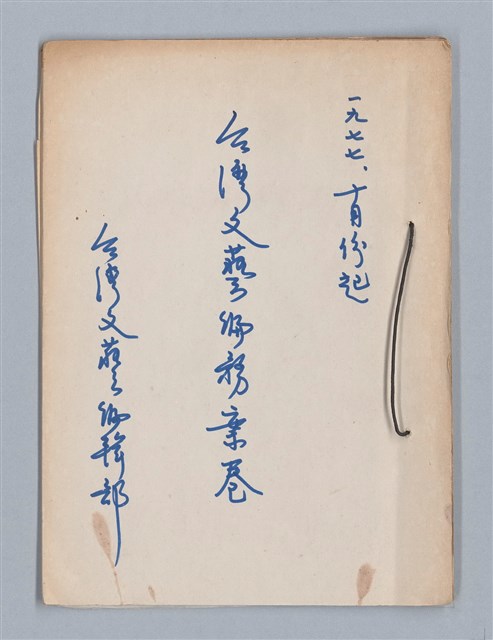 一九七七、十月份起
台湾文藝編務案卷
台湾文藝編輯部